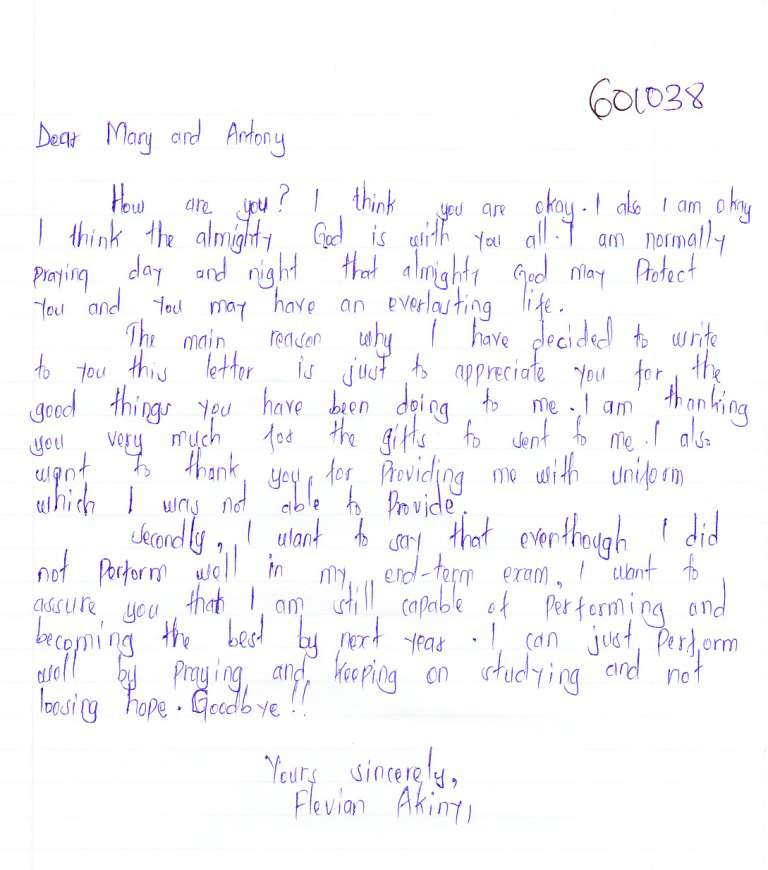 601038
Dear Mary and Antony
How are you? I think you are okay. I also I am okay
I think the almighty God is with you all. I am normally
praying day and night that almighty God may Protect
You and you may have an everlasting life.
The main reason why I have decided to write
to you this letter is just to appreciate you for the
good things you have been doing to me. I am thanking
you very much for the gifts to sent to me. I also
want to thank you for Providing me with uniform
which I was not able to Provide.
Secondly, I want to say that eventhough I did
not Perform well in my end-term exam, I want to
assure you that I am still capable of Performing and
becoming the best by next year. I can just Perform
well by Praying and keeping on studying and not
loosing hope. Goodbye!!
Yours sincerely,
Flevian Akinyi